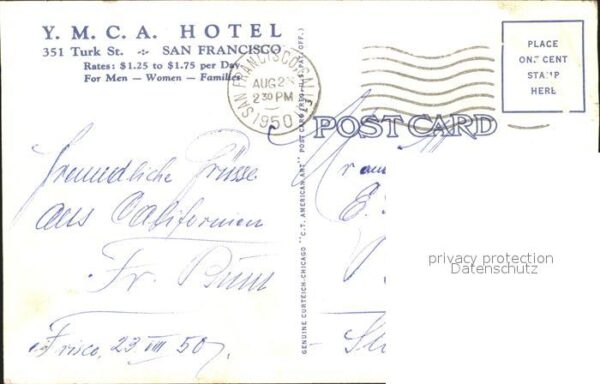 Y. M. C. A. HOTEL
351 Turk St. -:- SAN FRANCISCO
Rates: $1.25 to $1.75 per Day
For Men — Women — Families
SAN FRANCISCO, CALIF.
AUG 23
2 30 PM
1950
PLACE
ONE CENT
STAMP
HERE
POST CARD
Freundliche Grüsse
aus Californien
Fr.
Frisco, 23. VIII 50.
GENUINE CURTEICH-CHICAGO "C.T. AMERICAN ART" POST CARD (REG. U.S. PAT. OFF.)
E.
privacy protection
Datenschutz